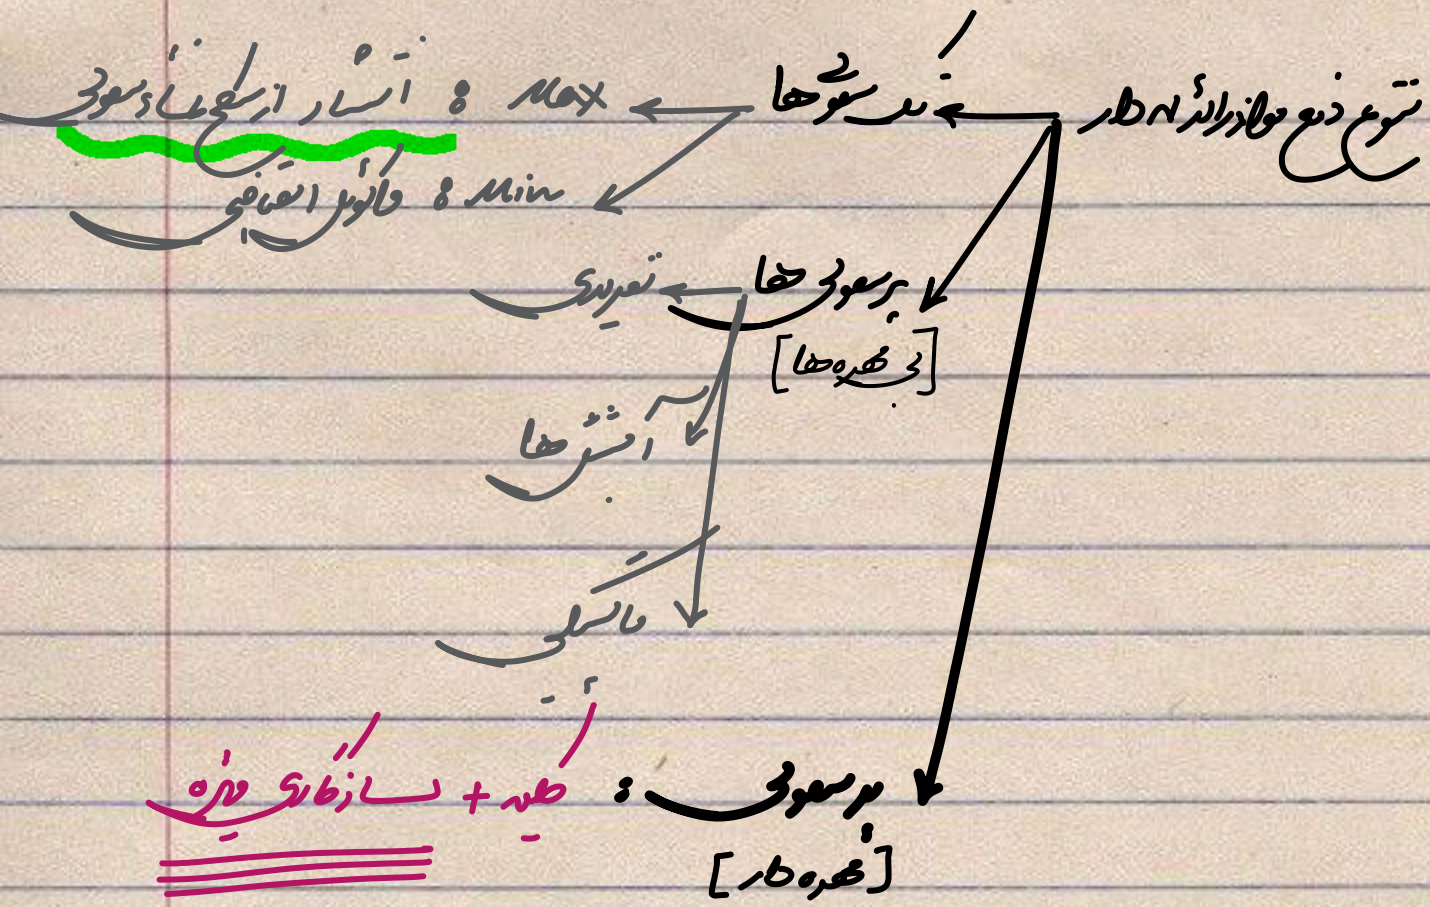 تنوع دفع مواد زائد نیتروژن دار
تک سلولی ها
Max : انتشار از سطح غشای سلولی
Min : واکوئل انقباضی
پرسلولی ها
[بی مهره ها]
نفریدی
آبشش ها
مالپیگی
پرسلولی :
کلیه + سازگاری ویژه
[مهره دار]